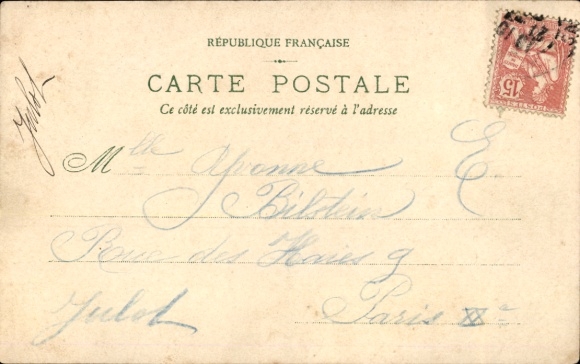 RÉPUBLIQUE FRANÇAISE
CARTE POSTALE
Ce côté est exclusivement réservé à l'adresse
Julot
Mlle Yvonne E
Bilstein
Rue des Haies 9
Julot Paris
15